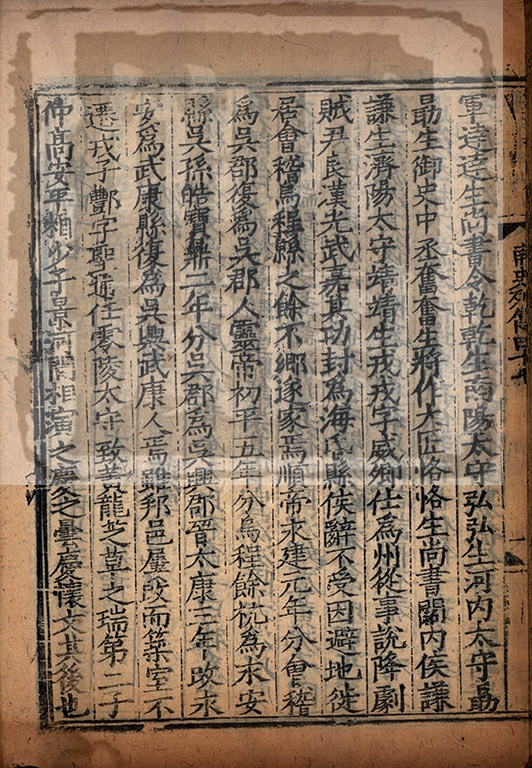 軍達達生尚書令乾乾生南陽太守弘弘生河内太守勗
勗生御史中丞奮奮生將作大匠恪恪生尚書關内侯謙
謙生濟陽太守靖靖生戎戎字威卿仕為州從事說降劇
賊尹良漢光武嘉其功封為海昏縣侯辭不受因避地徙
居會稽烏程縣之餘不鄉遂家焉順帝永建元年分會稽
為吳郡復為吳郡人靈帝初平五年分烏程餘杭為永安
縣吳孫皓寶鼎二年分吳郡為吳興郡晉太康三年改永
安為武康縣復為吳興武康人焉雖邦邑屢改而築室不
遷戎子酆字聖通仕零陵太守致黃龍芝草之瑞第二子
仲高安平相少子景河間相演之慶之曇慶懷文其後也